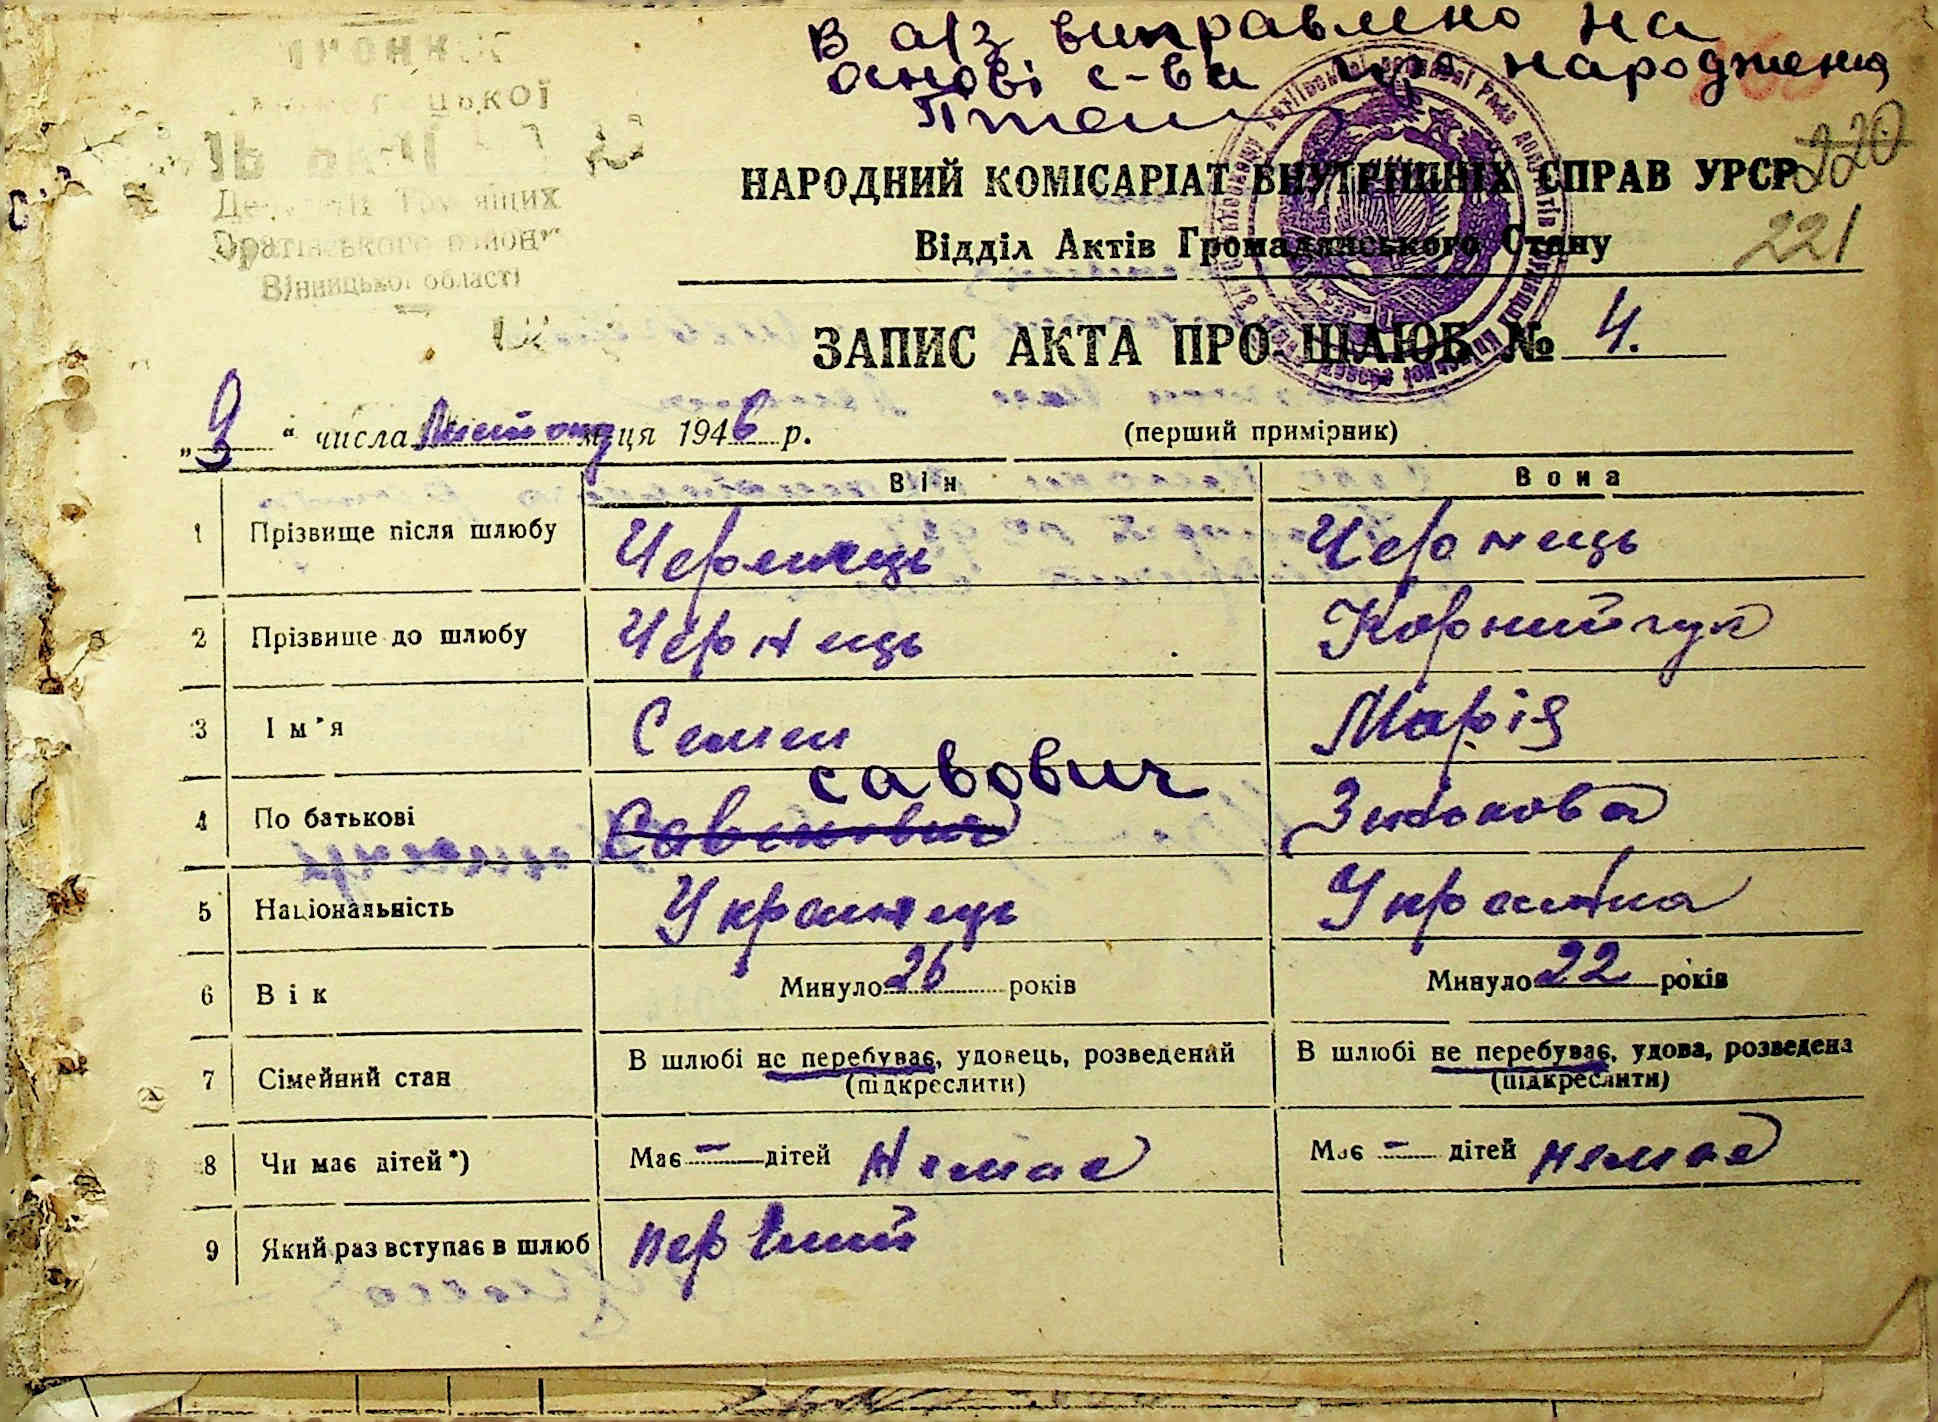 В а/з виправлено на
основі с-ва про народження
220
НАРОДНИЙ КОМІСАРІАТ ВНУТРІШНІХ СПРАВ УРСР
221
Відділ Актів Громадянського Стану
Вінницької області
ЗАПИС АКТА ПРО ШЛЮБ № 4.
„9“ числа Листопад м-ця 1946 р.
(перший примірник)
Він Вона
1 Прізвище після шлюбу Чернець Чернець
2 Прізвище до шлюбу Чернець Корнийчук
3 Ім'я Семен Марія
савович
4 По батькові Савонович Зиньковa
5 Національність Українець Українка
6 Вік Минуло 26 років Минуло 22 років
7 Сімейний стан В шлюбі не перебуває, удовець, розведений В шлюбі не перебуває, удова, розведена
(підкреслити) (підкреслити)
8 Чи має дітей*) Має – дітей Немає Має – дітей немає
9 Який раз вступає в шлюб первший